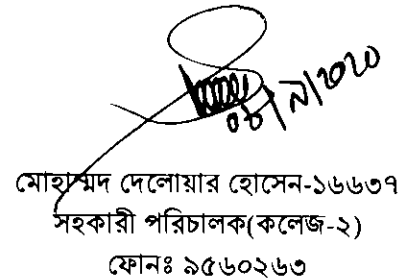 ০৮/৯/২০২০
মোহাম্মদ দেলোয়ার হোসেন-১৬৬৩৭
সহকারী পরিচালক(কলেজ-২)
ফোনঃ ৯৫৬০২৬৩